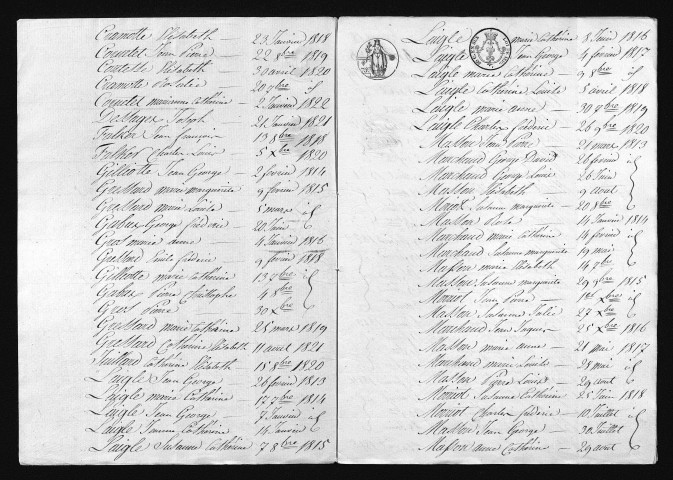 Cramotte Elisabeth — 23 Janvier 1818
Courtet Jean Pierre — 22 8bre 1819
Courtette Elisabeth — 30 avril 1820
Cramotte Rosalie — 20 7bre
Courtet marianne Catherine — 2 Janvier 1822
Joseph — 21 Janvier 1821
Falkot Jean françois — 13 8bre 1818
Falkot Charles Louis — 5 Xbre 1820
Gilliotte Jean George — 2 fevrier 1814
marie marguerite — 9 fevrier 1815
marie Louise — 5 mars id
George frederic — 20 Juin
marie anne — 4 Janvier 1816
Emile frederic — 9 fevrier 1818
Gilliotte marie Catherine — 13 7bre id
Pierre Christophe — 4 8bre
Pierre — 30 Xbre
marie Catherine — 25 mars 1819
Catherine Elisabeth — 11 avril 1821
Catherine Elisabeth — 15 8bre 1820
L'aigle Jean George — 26 fevrier 1813
L'aigle marie Catherine — 17 7bre 1814
L'aigle Jean George — 7 Janvier id
L'aigle Jeanne Catherine — 14 Janvier
L'aigle Susanne Catherine — 7 8bre 1815
L'aigle marie Catherine — 8 Juin 1816
L'aigle Jean George — 4 fevrier 1817
L'aigle marie Catherine — 9 8bre id
L'aigle Catherine Louise — 5 avril 1818
L'aigle marie anne — 30 7bre 1819
L'aigle Charles frederic — 26 9bre 1820
Masson Jean Pierre — 21 mars 1813
Marchand George David — 26 fevrier id
Marchand George Louis — 26 Juin
Masson Elisabeth — 9 avril
Susanne marguerite — 20 8bre
Masson — 14 Janvier 1814
Marchand marie Catherine — 14 fevrier id
Marchand Susanne marguerite — 19 mai
Masson marie Elisabeth — 14 7bre
Masson Susanne marguerite — 29 9bre 1815
Moniot Jean Pierre — 1er Xbre id
Masson Susanne Julie — 27 Xbre
Marchand Jean Jaques — 25 Xbre 1816
Masson marie anne — 21 mai 1817
Marchand marie Louise — 28 mai id
Masson Pierre Louis — 29 avril
Moniot Susanne Catherine — 25 Juin 1818
Moniot Charles frederic — 10 Juillet id
Masson Jean George — 30 Juillet
Masson anne Catherine — 29 avril